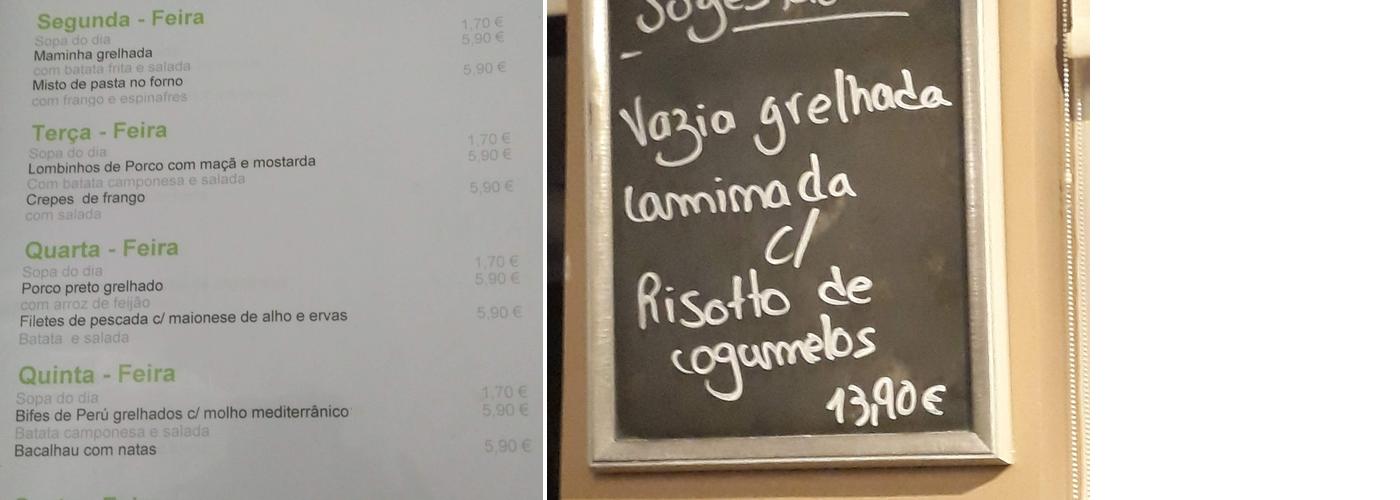 Segunda - Feira
Sopa do dia 1,70 €
Maminha grelhada 5,90 €
com batata frita e salada
Misto de pasta no forno 5,90 €
com frango e espinafres
Terça - Feira
Sopa do dia 1,70 €
Lombinhos de Porco com maçã e mostarda 5,90 €
Com batata camponesa e salada
Crepes de frango 5,90 €
com salada
Quarta - Feira
Sopa do dia 1,70 €
Porco preto grelhado 5,90 €
com arroz de feijão
Filetes de pescada c/ maionese de alho e ervas 5,90 €
Batata e salada
Quinta - Feira
Sopa do dia 1,70 €
Bifes de Perú grelhados c/ molho mediterrânico 5,90 €
Batata camponesa e salada
Bacalhau com natas 5,90 €
Vazia grelhada
laminada
c/
Risotto de
cogumelos
13,90 €